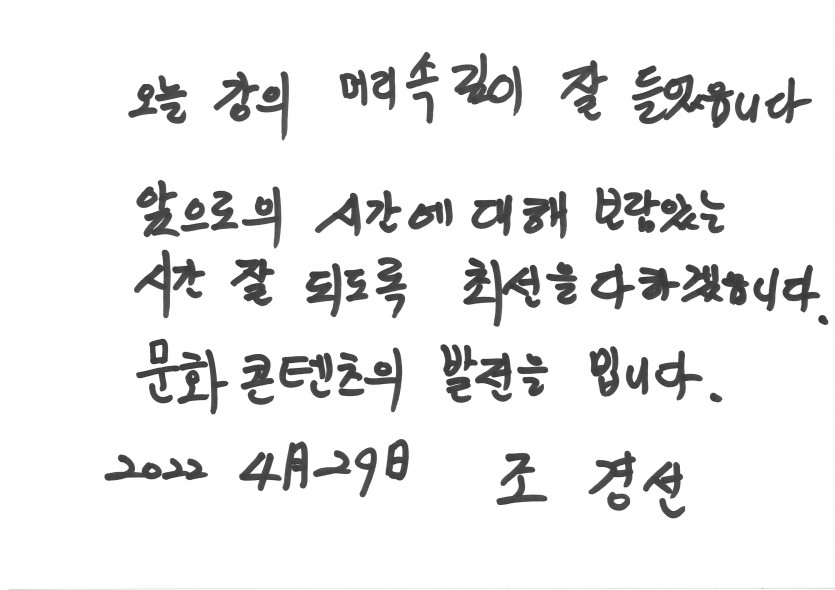 오늘 강의 머리속 깊이 잘 들었습니다
앞으로의 시간에 대해 보람있는
시간 잘 되도록 최선을 다하겠습니다.
문화콘텐츠의 발전을 입니다.
2022 4月29日 조 경선